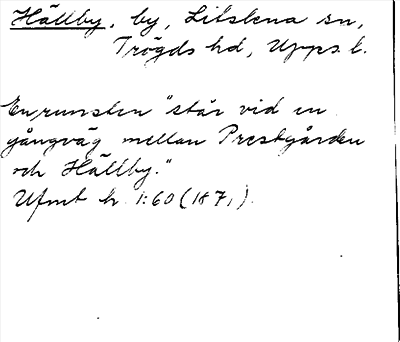 Hällby, by, Litslena sn,
Trögds hd, Upps. l.
En runsten "står vid en
gångväg mellan Prestgården
och Hällby."
Ufmt h. 1:60 (1871).